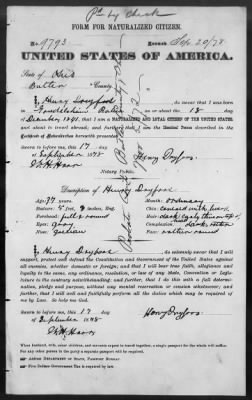 Pd by Check
FORM FOR NATURALIZED CITIZEN.
No. 9793
Issued Sep 20/78
UNITED STATES OF AMERICA.
State of Ohio
Butler County
I, Henry Dreyfoos, do swear that I was born
in Bavaria on or about the 18 day
of December 1841, that I am a NATURALIZED AND LOYAL CITIZEN OF THE UNITED STATES,
and about to travel abroad; and further, that I am the Identical Person described in the
Certificate of Naturalization herewith presented.
Sworn to before me, this 17 day
of September 1878
Henry Dreyfoos
Notary Public.
Description of Henry Dreyfoos
Age: 37 years.
Mouth: ordinary
Stature: 5 feet, inches, Eng.
Chin: covered with beard
Forehead: full & round
Hair: dark
Eyes: gray
Complexion: dark, rather
Nose:
Face: rather round
I, Henry Dreyfoos, do solemnly swear that I will
support, protect and defend the Constitution and Government of the United States against
all enemies, whether domestic or foreign; and that I will bear true faith, allegiance and
loyalty to the same, any ordinance, resolution, or law of any State, Convention or Legis-
lature to the contrary notwithstanding; and further, that I do this with a full deter-
mination, pledge and purpose, without any mental reservation or evasion whatsoever; and
further, that I will well and faithfully perform all the duties which may be required of
me by law. So help me God.
Sworn to before me, this 17 day
of September 1878
Henry Dreyfoos
When husband, wife, minor children, and servants expect to travel together, a single passport for the whole will suffice.
For any other person in the party a separate passport will be required.
Address DEPARTMENT OF STATE, PASSPORT BUREAU
Five Dollars Government Tax is required by law